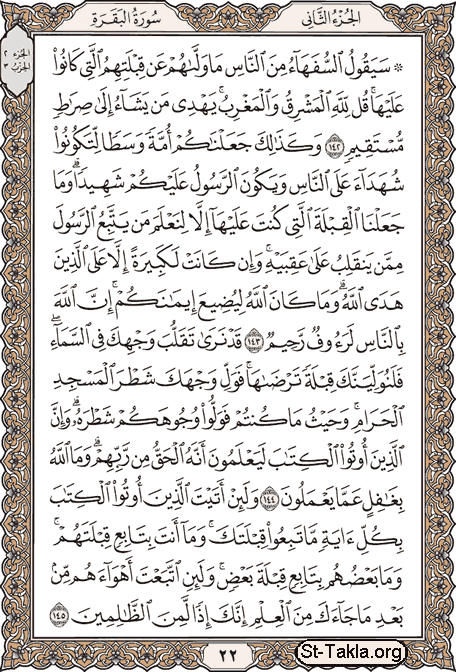 الجُزْءُ الثَّانِي
سُورَةُ البَقَرَةِ
الجزء ٢
الحزب ٣
۞ سَيَقُولُ ٱلسُّفَهَآءُ مِنَ ٱلنَّاسِ مَا وَلَّىٰهُمْ عَن قِبْلَتِهِمُ ٱلَّتِى كَانُوا۟
عَلَيْهَا ۚ قُل لِّلَّهِ ٱلْمَشْرِقُ وَٱلْمَغْرِبُ ۚ يَهْدِى مَن يَشَآءُ إِلَىٰ صِرَٰطٍ
مُّسْتَقِيمٍ ١٤٢ وَكَذَٰلِكَ جَعَلْنَٰكُمْ أُمَّةً وَسَطًا لِّتَكُونُوا۟
شُهَدَآءَ عَلَى ٱلنَّاسِ وَيَكُونَ ٱلرَّسُولُ عَلَيْكُمْ شَهِيدًا ۗ وَمَا
جَعَلْنَا ٱلْقِبْلَةَ ٱلَّتِى كُنتَ عَلَيْهَآ إِلَّا لِنَعْلَمَ مَن يَتَّبِعُ ٱلرَّسُولَ
مِمَّن يَنقَلِبُ عَلَىٰ عَقِبَيْهِ ۚ وَإِن كَانَتْ لَكَبِيرَةً إِلَّا عَلَى ٱلَّذِينَ
هَدَى ٱللَّهُ ۗ وَمَا كَانَ ٱللَّهُ لِيُضِيعَ إِيمَٰنَكُمْ ۚ إِنَّ ٱللَّهَ
بِٱلنَّاسِ لَرَءُوفٌ رَّحِيمٌ ١٤٣ قَدْ نَرَىٰ تَقَلُّبَ وَجْهِكَ فِى ٱلسَّمَآءِ ۖ
فَلَنُوَلِّيَنَّكَ قِبْلَةً تَرْضَىٰهَا ۚ فَوَلِّ وَجْهَكَ شَطْرَ ٱلْمَسْجِدِ
ٱلْحَرَامِ ۚ وَحَيْثُ مَا كُنتُمْ فَوَلُّوا۟ وُجُوهَكُمْ شَطْرَهُۥ ۗ وَإِنَّ
ٱلَّذِينَ أُوتُوا۟ ٱلْكِتَٰبَ لَيَعْلَمُونَ أَنَّهُ ٱلْحَقُّ مِن رَّبِّهِمْ ۗ وَمَا ٱللَّهُ
بِغَٰفِلٍ عَمَّا يَعْمَلُونَ ١٤٤ وَلَئِنْ أَتَيْتَ ٱلَّذِينَ أُوتُوا۟ ٱلْكِتَٰبَ
بِكُلِّ ءَايَةٍ مَّا تَبِعُوا۟ قِبْلَتَكَ ۚ وَمَآ أَنتَ بِتَابِعٍ قِبْلَتَهُمْ ۚ
وَمَا بَعْضُهُم بِتَابِعٍ قِبْلَةَ بَعْضٍ ۚ وَلَئِنِ ٱتَّبَعْتَ أَهْوَآءَهُم مِّنۢ
بَعْدِ مَا جَآءَكَ مِنَ ٱلْعِلْمِ ۙ إِنَّكَ إِذًا لَّمِنَ ٱلظَّٰلِمِينَ ١٤٥
٢٢
St-Takla.org